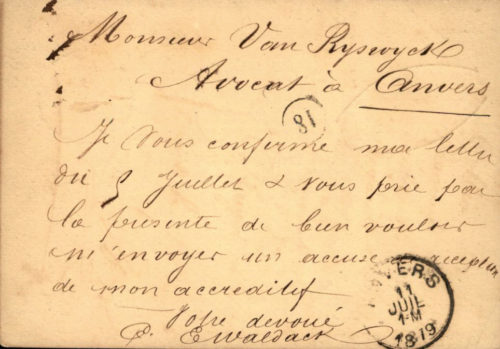 Monsieur Van Ryswyck
Avocat à Anvers
18
Je vous confirme ma lettre
du 5 Juillet & vous prie par
la présente de bien vouloir
m'envoyer un accusé réception
de mon accréditif
Votre dévoué
E. Ewaldack
ANVERS
11
JUIL
1-M
1879